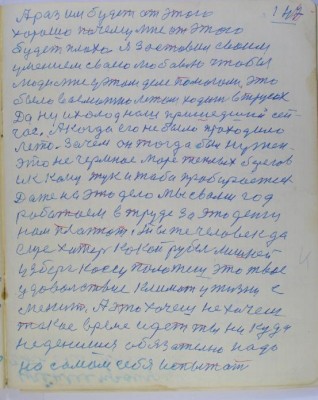 А раз им будет от этого
хорошо почему мне от этого
будет плохо. Я заставил своим
умением свою любовь чтобы
людям в этом деле помогали, это
было возможно летом ходит в трусах
До ну и холод нам пришедший сей-
час. А когда его не было проходило
лето. Зачем он тогда был нужен.
Это не Черное море теплых берегов
и к кому жук и жаба пробирается
Даже мы это дело мы свами год
работаем в труде за это деньги
нам платют. Ты же человек да
еще хитер какой рубля лишней
у сберкассу положит это твое
удовольствие климат у жизни с
менит. А это хочеш не хочеш
такое время идет ты ни куда
не денешся обязательно надо
на самом себя испытат